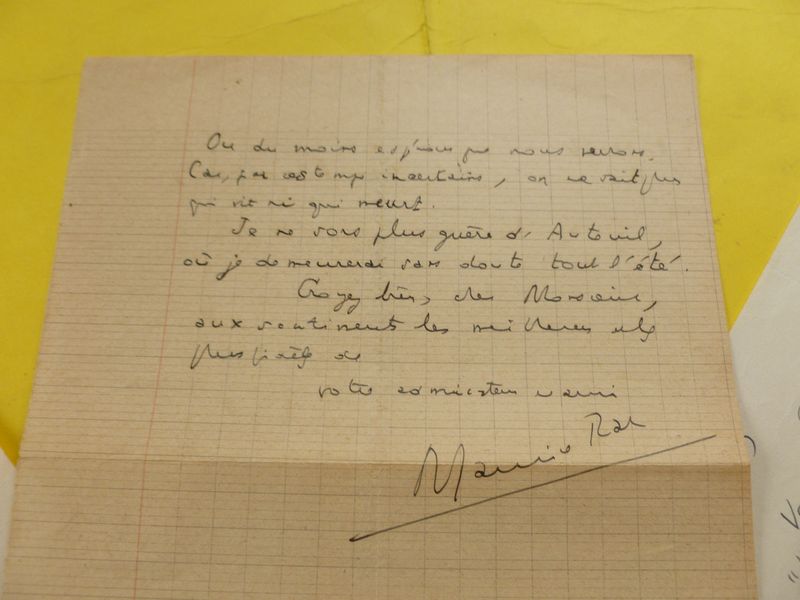 Ou du moins espérons que nous
Car, par ces temps incertains, on ne sait plus
qui vit ni qui meurt.
Je ne sors plus guère d'Auteuil,
où je demeurerai sans doute tout l'été.
Croyez bien, cher Monsieur,
aux sentiments les meilleurs et les
plus fidèles de
votre admirateur et ami
Maurice Rat